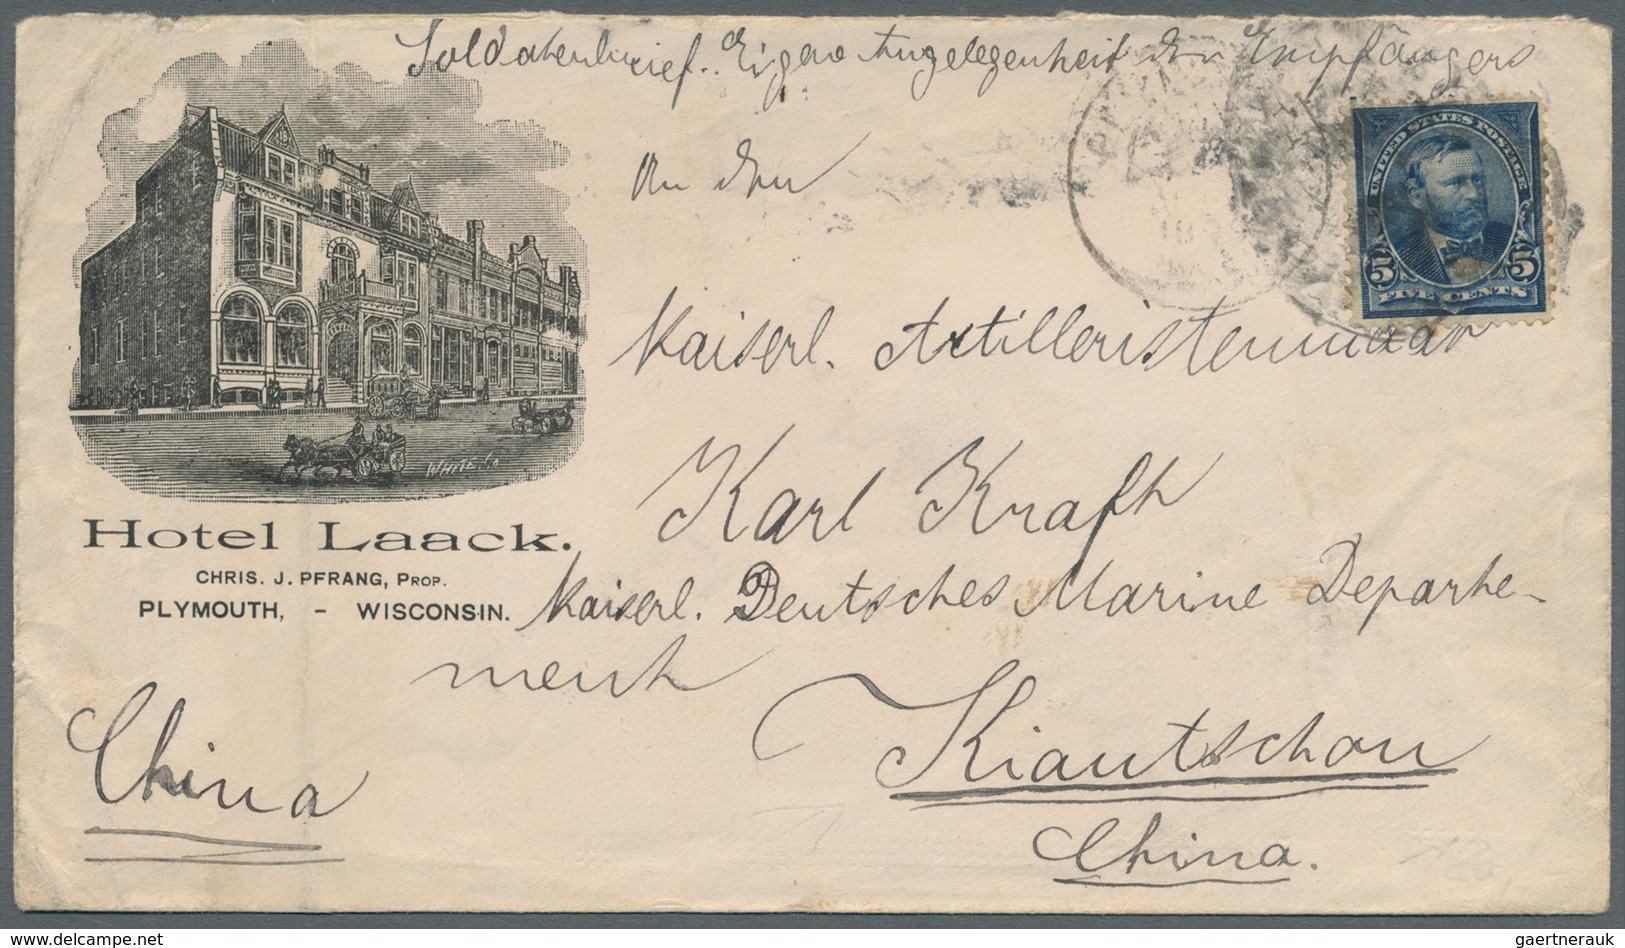 Soldatenbrief. Eigene Angelegenheit des Empfängers
An den
UNITED STATES POSTAGE
5 5
FIVE CENTS
Kaiserl. Artilleristenmaar
WHITE CO
Karl Kraft
Hotel Laack.
CHRIS. J. PFRANG, PROP.
PLYMOUTH, - WISCONSIN.
Kaiserl. Deutsches Marine Departe-
ment
Kiautschou
China
China.
gaertnerauk